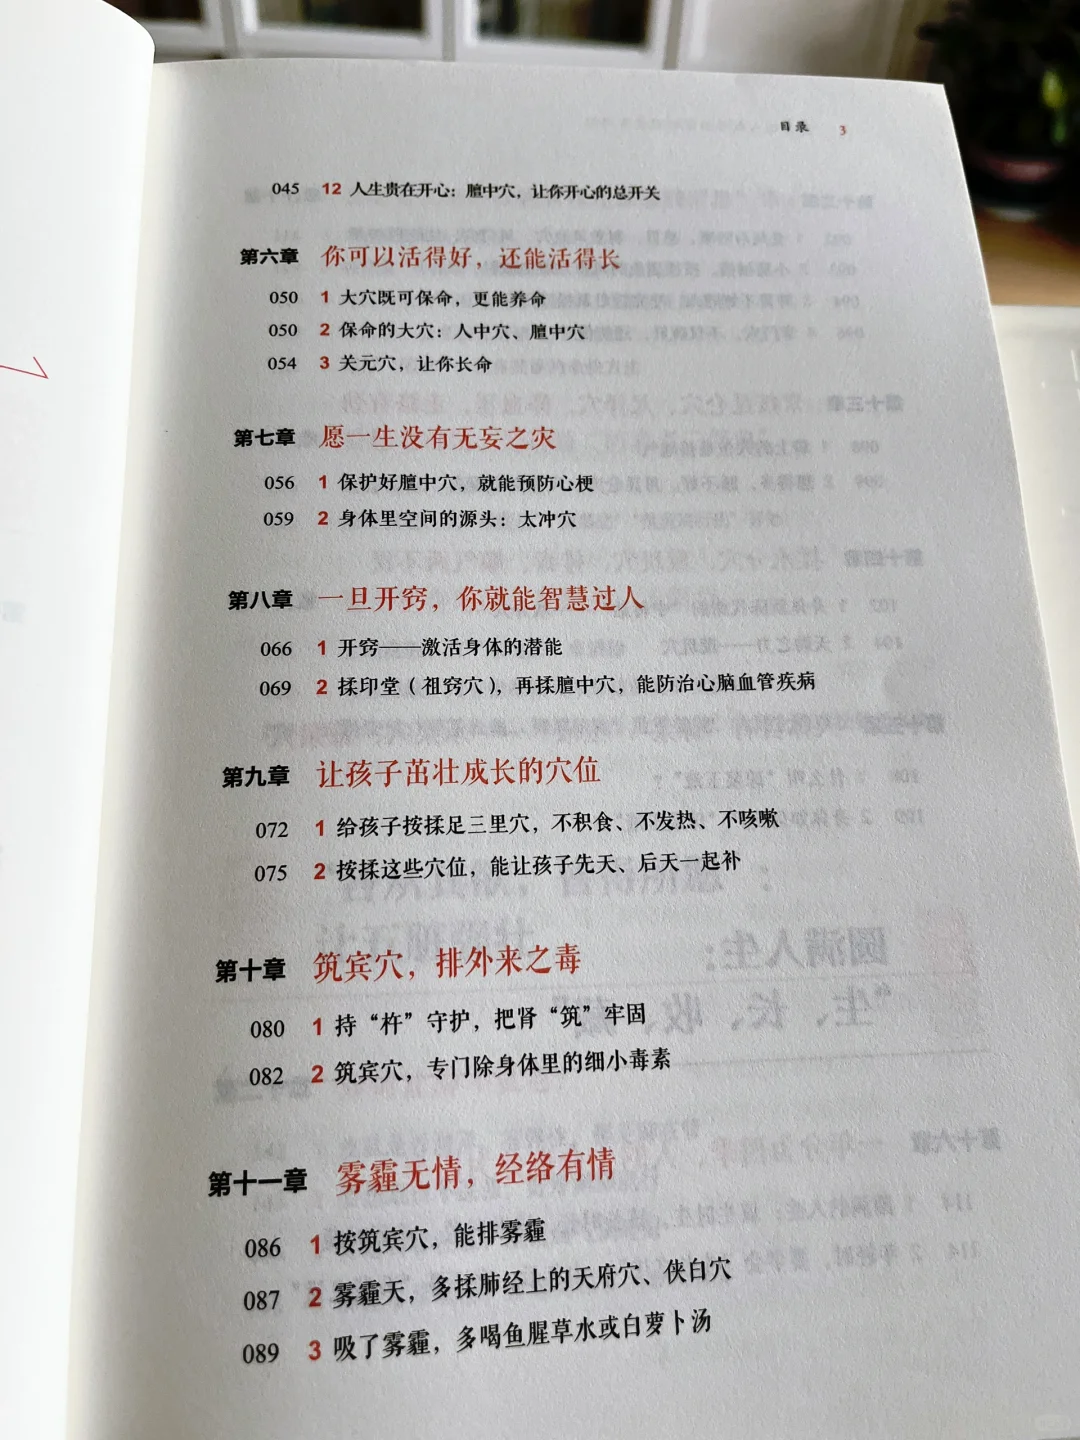 目录 3
045 12 人生贵在开心：膻中穴，让你开心的总开关
第六章 你可以活得好，还能活得长
050 1 大穴既可保命，更能养命
050 2 保命的大穴：人中穴、膻中穴
054 3 关元穴，让你长命
第七章 愿一生没有无妄之灾
056 1 保护好膻中穴，就能预防心梗
059 2 身体里空间的源头：太冲穴
第八章 一旦开窍，你就能智慧过人
066 1 开窍——激活身体的潜能
069 2 揉印堂（祖窍穴），再揉膻中穴，能防治心脑血管疾病
第九章 让孩子茁壮成长的穴位
072 1 给孩子按揉足三里穴，不积食、不发热、不咳嗽
075 2 按揉这些穴位，能让孩子先天、后天一起补
第十章 筑宾穴，排外来之毒
080 1 持“杵”守护，把肾“筑”牢固
082 2 筑宾穴，专门除身体里的细小毒素
第十一章 雾霾无情，经络有情
086 1 按筑宾穴，能排雾霾
087 2 雾霾天，多揉肺经上的天府穴、侠白穴
089 3 吸了雾霾，多喝鱼腥草水或白萝卜汤